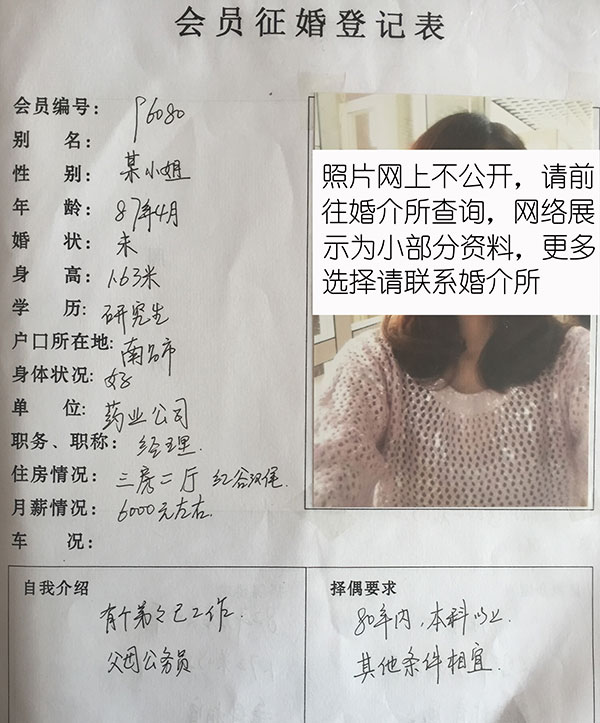 会员征婚登记表
会员编号： P6080
别 名： 某小姐
性 别：
年 龄： 87年4月
婚 状： 未
身 高： 1.63米
学 历： 研究生
户口所在地: 南昌市
身体状况: 好
单 位: 药业公司
职务、职称： 经理
住房情况： 三房二厅 红谷滩
月薪情况： 6000元左右.
车 况：
照片网上不公开，请前
往婚介所查询，网络展
示为小部分资料，更多
选择请联系婚介所
自我介绍
有个弟弟已工作.
父母公务员
择偶要求
80年内，本科以上
其他条件相宜.